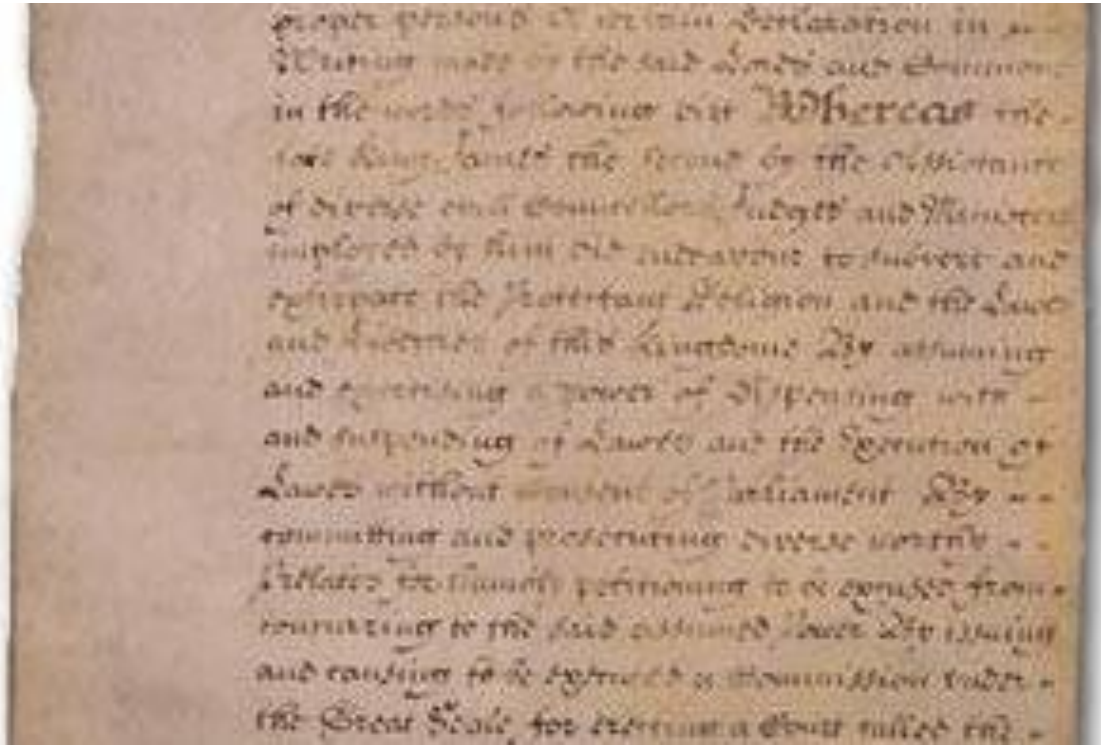 proper persons A certaine Declaration in
Writeing made by the said Lords and Comons
in the words following viz Whereas the
late King James the Second by the Assistance
of diverse evill Councellors Judges and Ministers
imployed by him did endeavour to subvert and
extirpate the Protestant Religion and the Lawes
and Liberties of this Kingdome By assuming
and exercising a power of dispensing with
and suspending of Lawes and the Execution of
Lawes without Consent of Parliament By
committing and prosecuting diverse worthy
Prelates for humbly petitioning to be excused from
concurring to the said assumed Power By issuing
and causing to be executed a Commission under
the Great Seale for erecting a Court called the